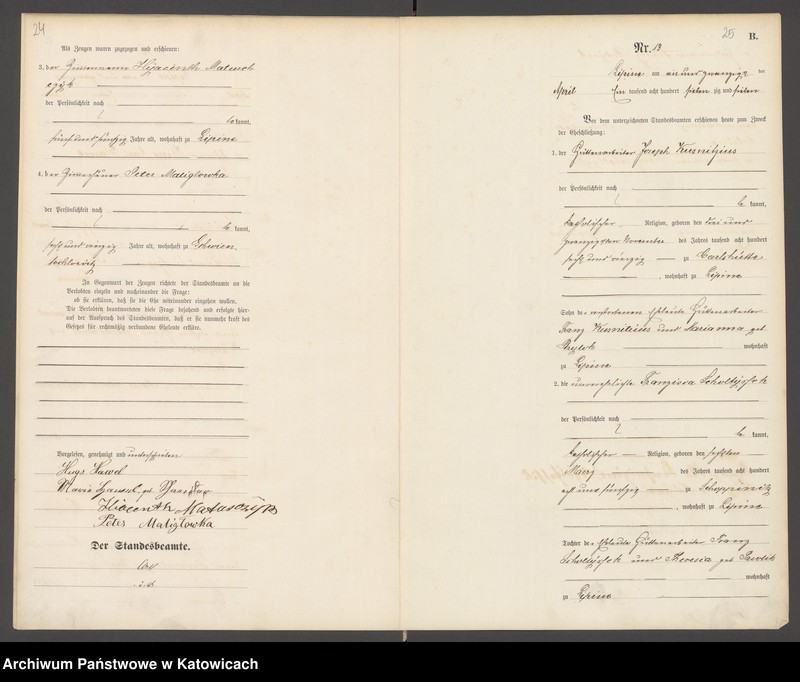 24
Als Zeugen waren zugezogen und erschienen:
3. der Hyacinth Matusch
czyk
der Persönlichkeit nach
kannt,
fünf und fünfzig Jahre alt, wohnhaft zu Lipine
4. der Peter Maliglowka
der Persönlichkeit nach
kannt,
sechs und vierzig Jahre alt, wohnhaft zu Schwien
tochlowitz
In Gegenwart der Zeugen richtete der Standesbeamte an die
Verlobten einzeln und nacheinander die Frage:
ob sie erklären, daß sie die Ehe miteinander eingehen wollen.
Die Verlobten beantworteten diese Frage bejahend und erfolgte hier-
auf der Ausspruch des Standesbeamten, daß er sie nunmehr kraft des
Gesetzes für rechtmäßig verbundene Eheleute erkläre.
Vorgelesen, genehmigt und unterschrieben
Hugo Pawel
Marie geb.
Hiacenth Matusczÿk
Peter Maliglowka
Der Standesbeamte.
25 B.
Nr. 13
Lipine am ein und zwanzigs ten
April Ein tausend acht hundert sieben zig und sieben
Vor dem unterzeichneten Standesbeamten erschienen heute zum Zweck
der Eheschließung:
1. der Hüttenarbeiter Joseph Kusnitzius
der Persönlichkeit nach
kannt,
katholischer Religion, geboren den drei und
zwanzigsten November des Jahres tausend acht hundert
sechs und vierzig zu Carlshütte
, wohnhaft zu Lipine
Sohn der verstorbenen Eheleute Hüttenarbeiter
Franz Kusnitzius und Marianna geb.
wohnhaft
zu Lipine
2. die unverehelichte Franziska Scholtyssek
der Persönlichkeit nach
kannt,
katholischer Religion, geboren den sechsten
Maerz des Jahres tausend acht hundert
acht und fünfzig zu Schoppinitz
, wohnhaft zu Lipine
Tochter der Eheleute Hüttenarbeiter Franz
Scholtyssek und Theresia geb. Pawlik
wohnhaft
zu Lipine
Archiwum Państwowe w Katowicach